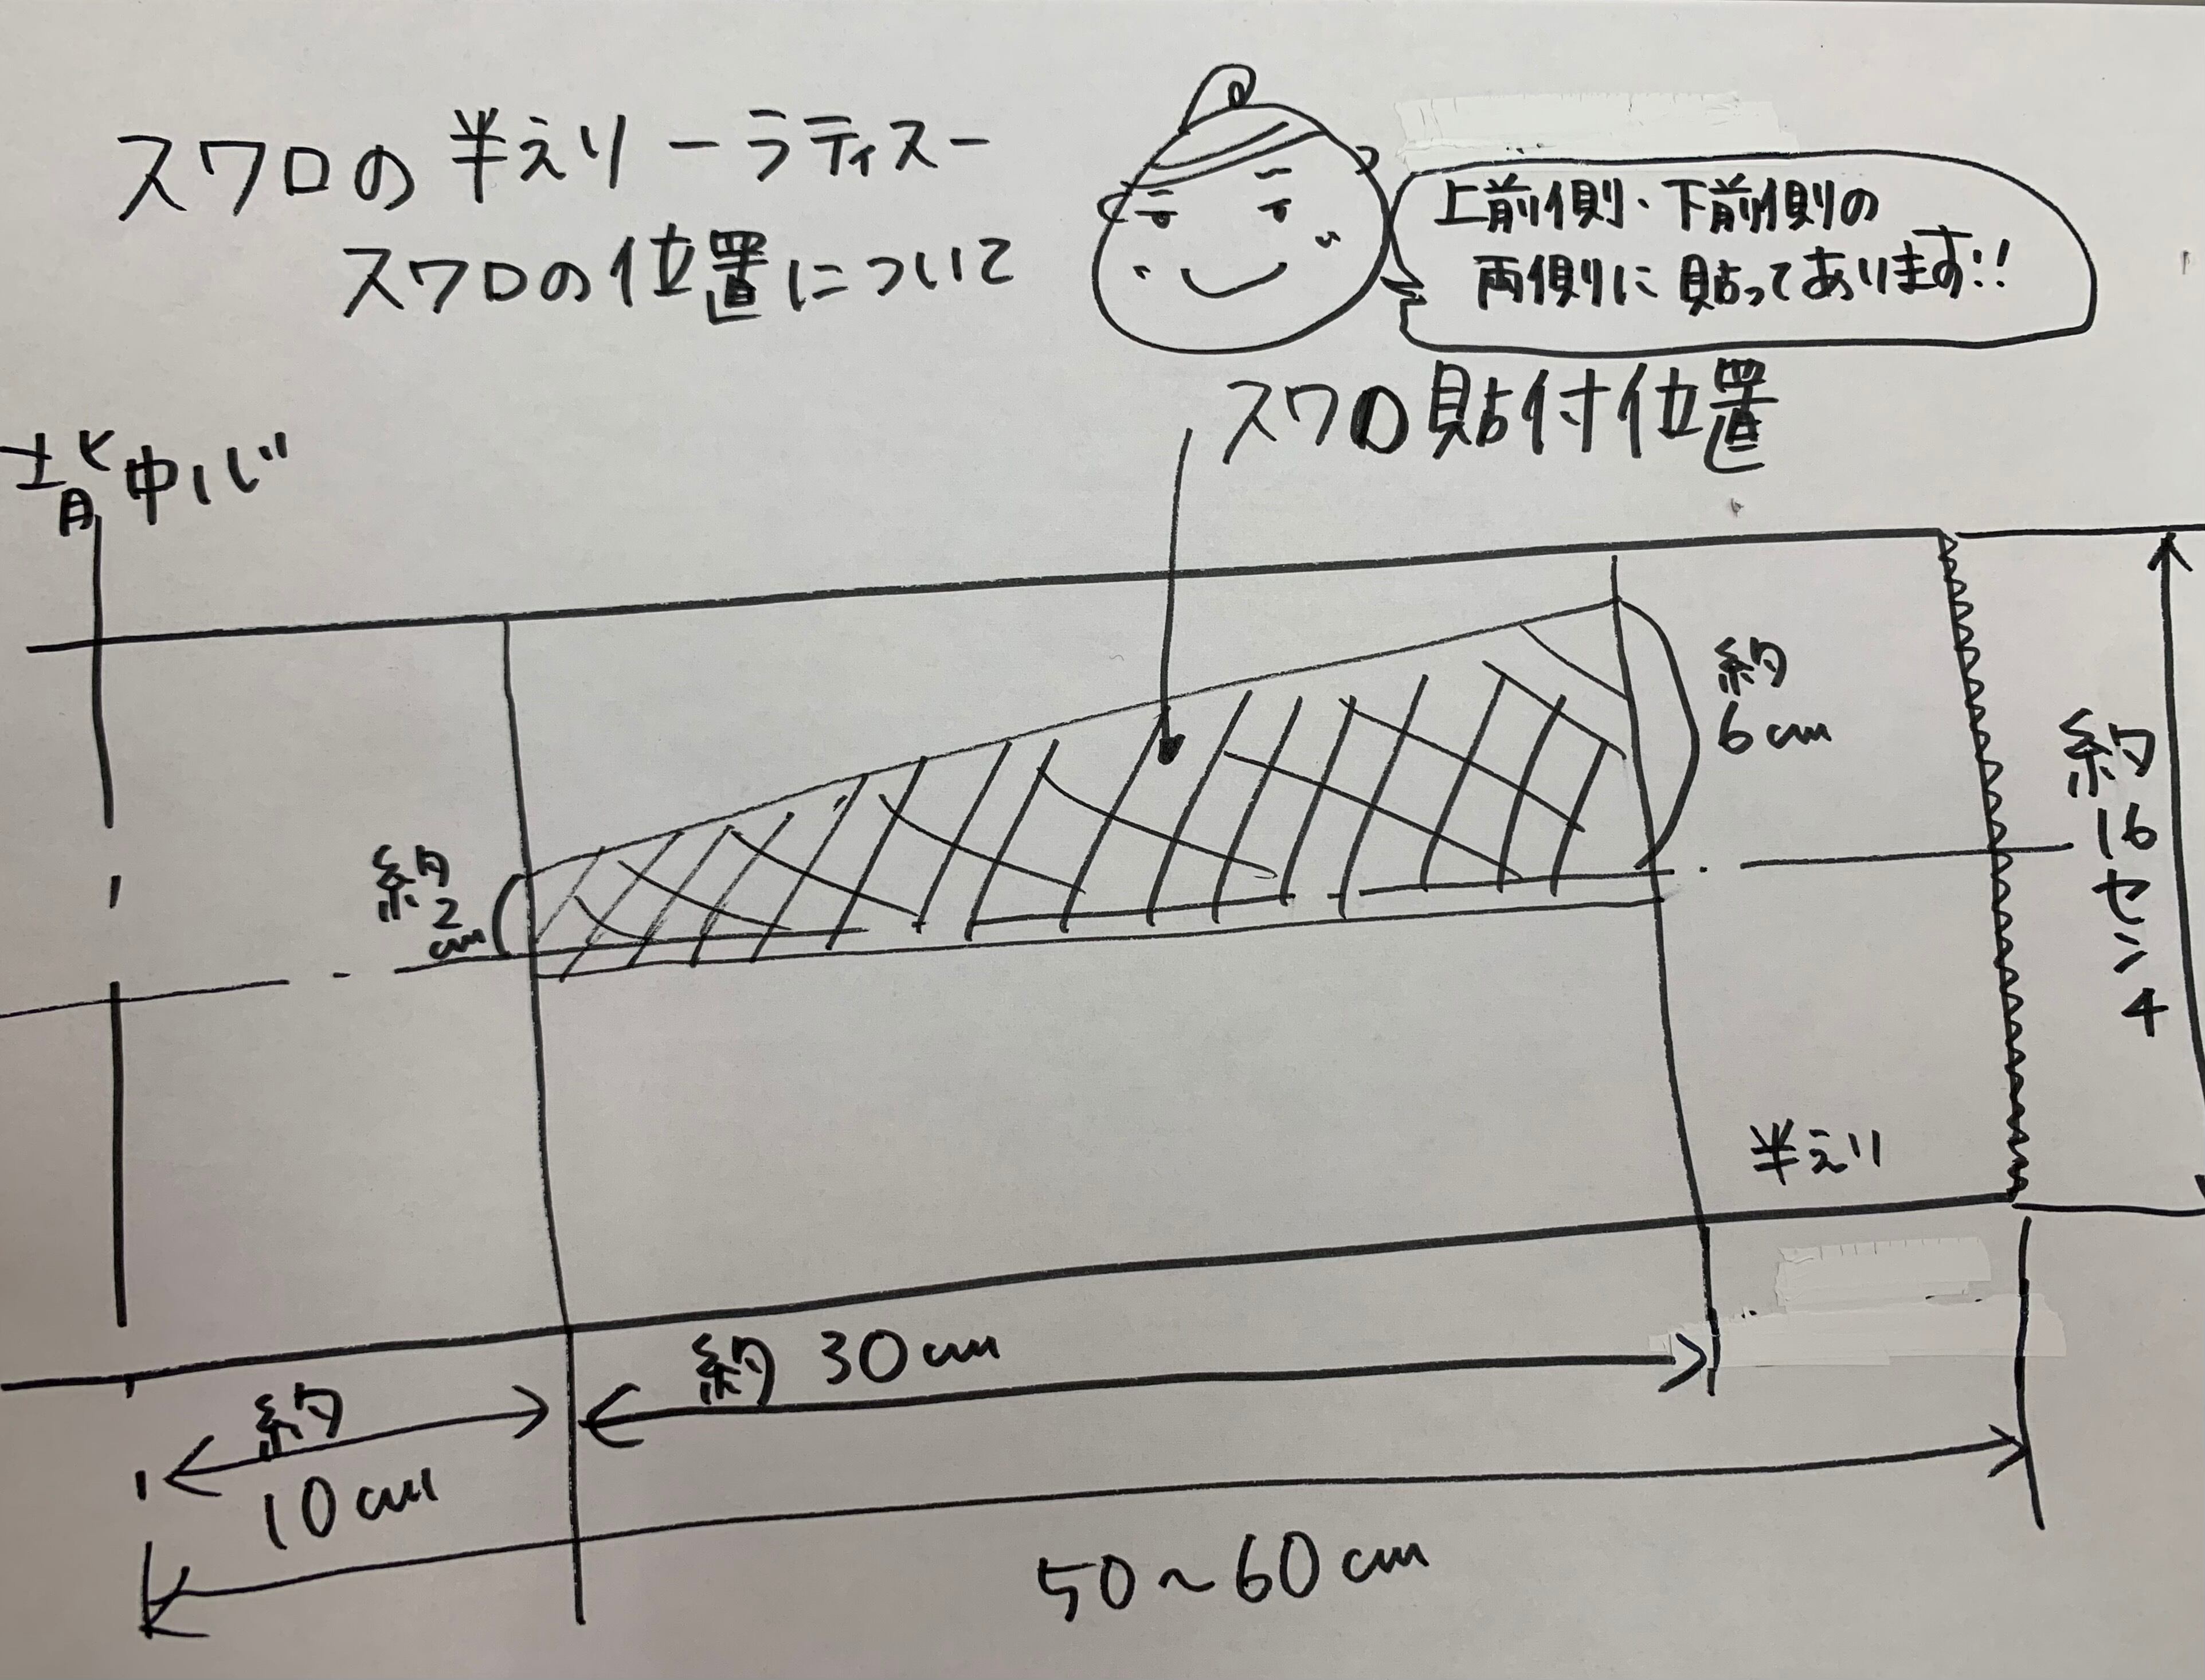 スワロの半えり ーラティスー
スワロの位置について
上前側・下前側の
両側に貼ってあります!!
スワロ貼付位置
背中心
約
6cm
約16センチ
約
2
cm
半えり
約 30cm
約
10cm
50~60cm